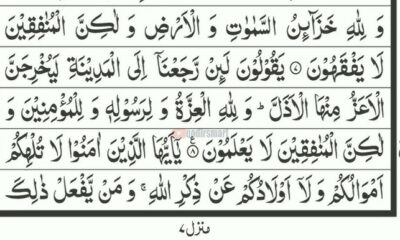 وَ لِلّٰهِ خَزَآئِنُ السَّمٰوٰتِ وَ الْاَرْضِ وَ لٰكِنَّ الْمُنٰفِقِيْنَ
لَا يَفْقَهُوْنَ ۷ يَقُوْلُوْنَ لَئِنْ رَّجَعْنَاۤ اِلَى الْمَدِيْنَةِ لَيُخْرِجَنَّ
الْاَعَزُّ مِنْهَا الْاَذَلَّ ؕ وَ لِلّٰهِ الْعِزَّةُ وَ لِرَسُوْلِهٖ وَ لِلْمُؤْمِنِيْنَ وَ
لٰكِنَّ الْمُنٰفِقِيْنَ لَا يَعْلَمُوْنَ ۸ يٰۤاَيُّهَا الَّذِيْنَ اٰمَنُوْا لَا تُلْهِكُمْ
اَمْوَالُكُمْ وَ لَاۤ اَوْلَادُكُمْ عَنْ ذِكْرِ اللّٰهِ ۚ وَ مَنْ يَّفْعَلْ ذٰلِكَ
منزل ۷